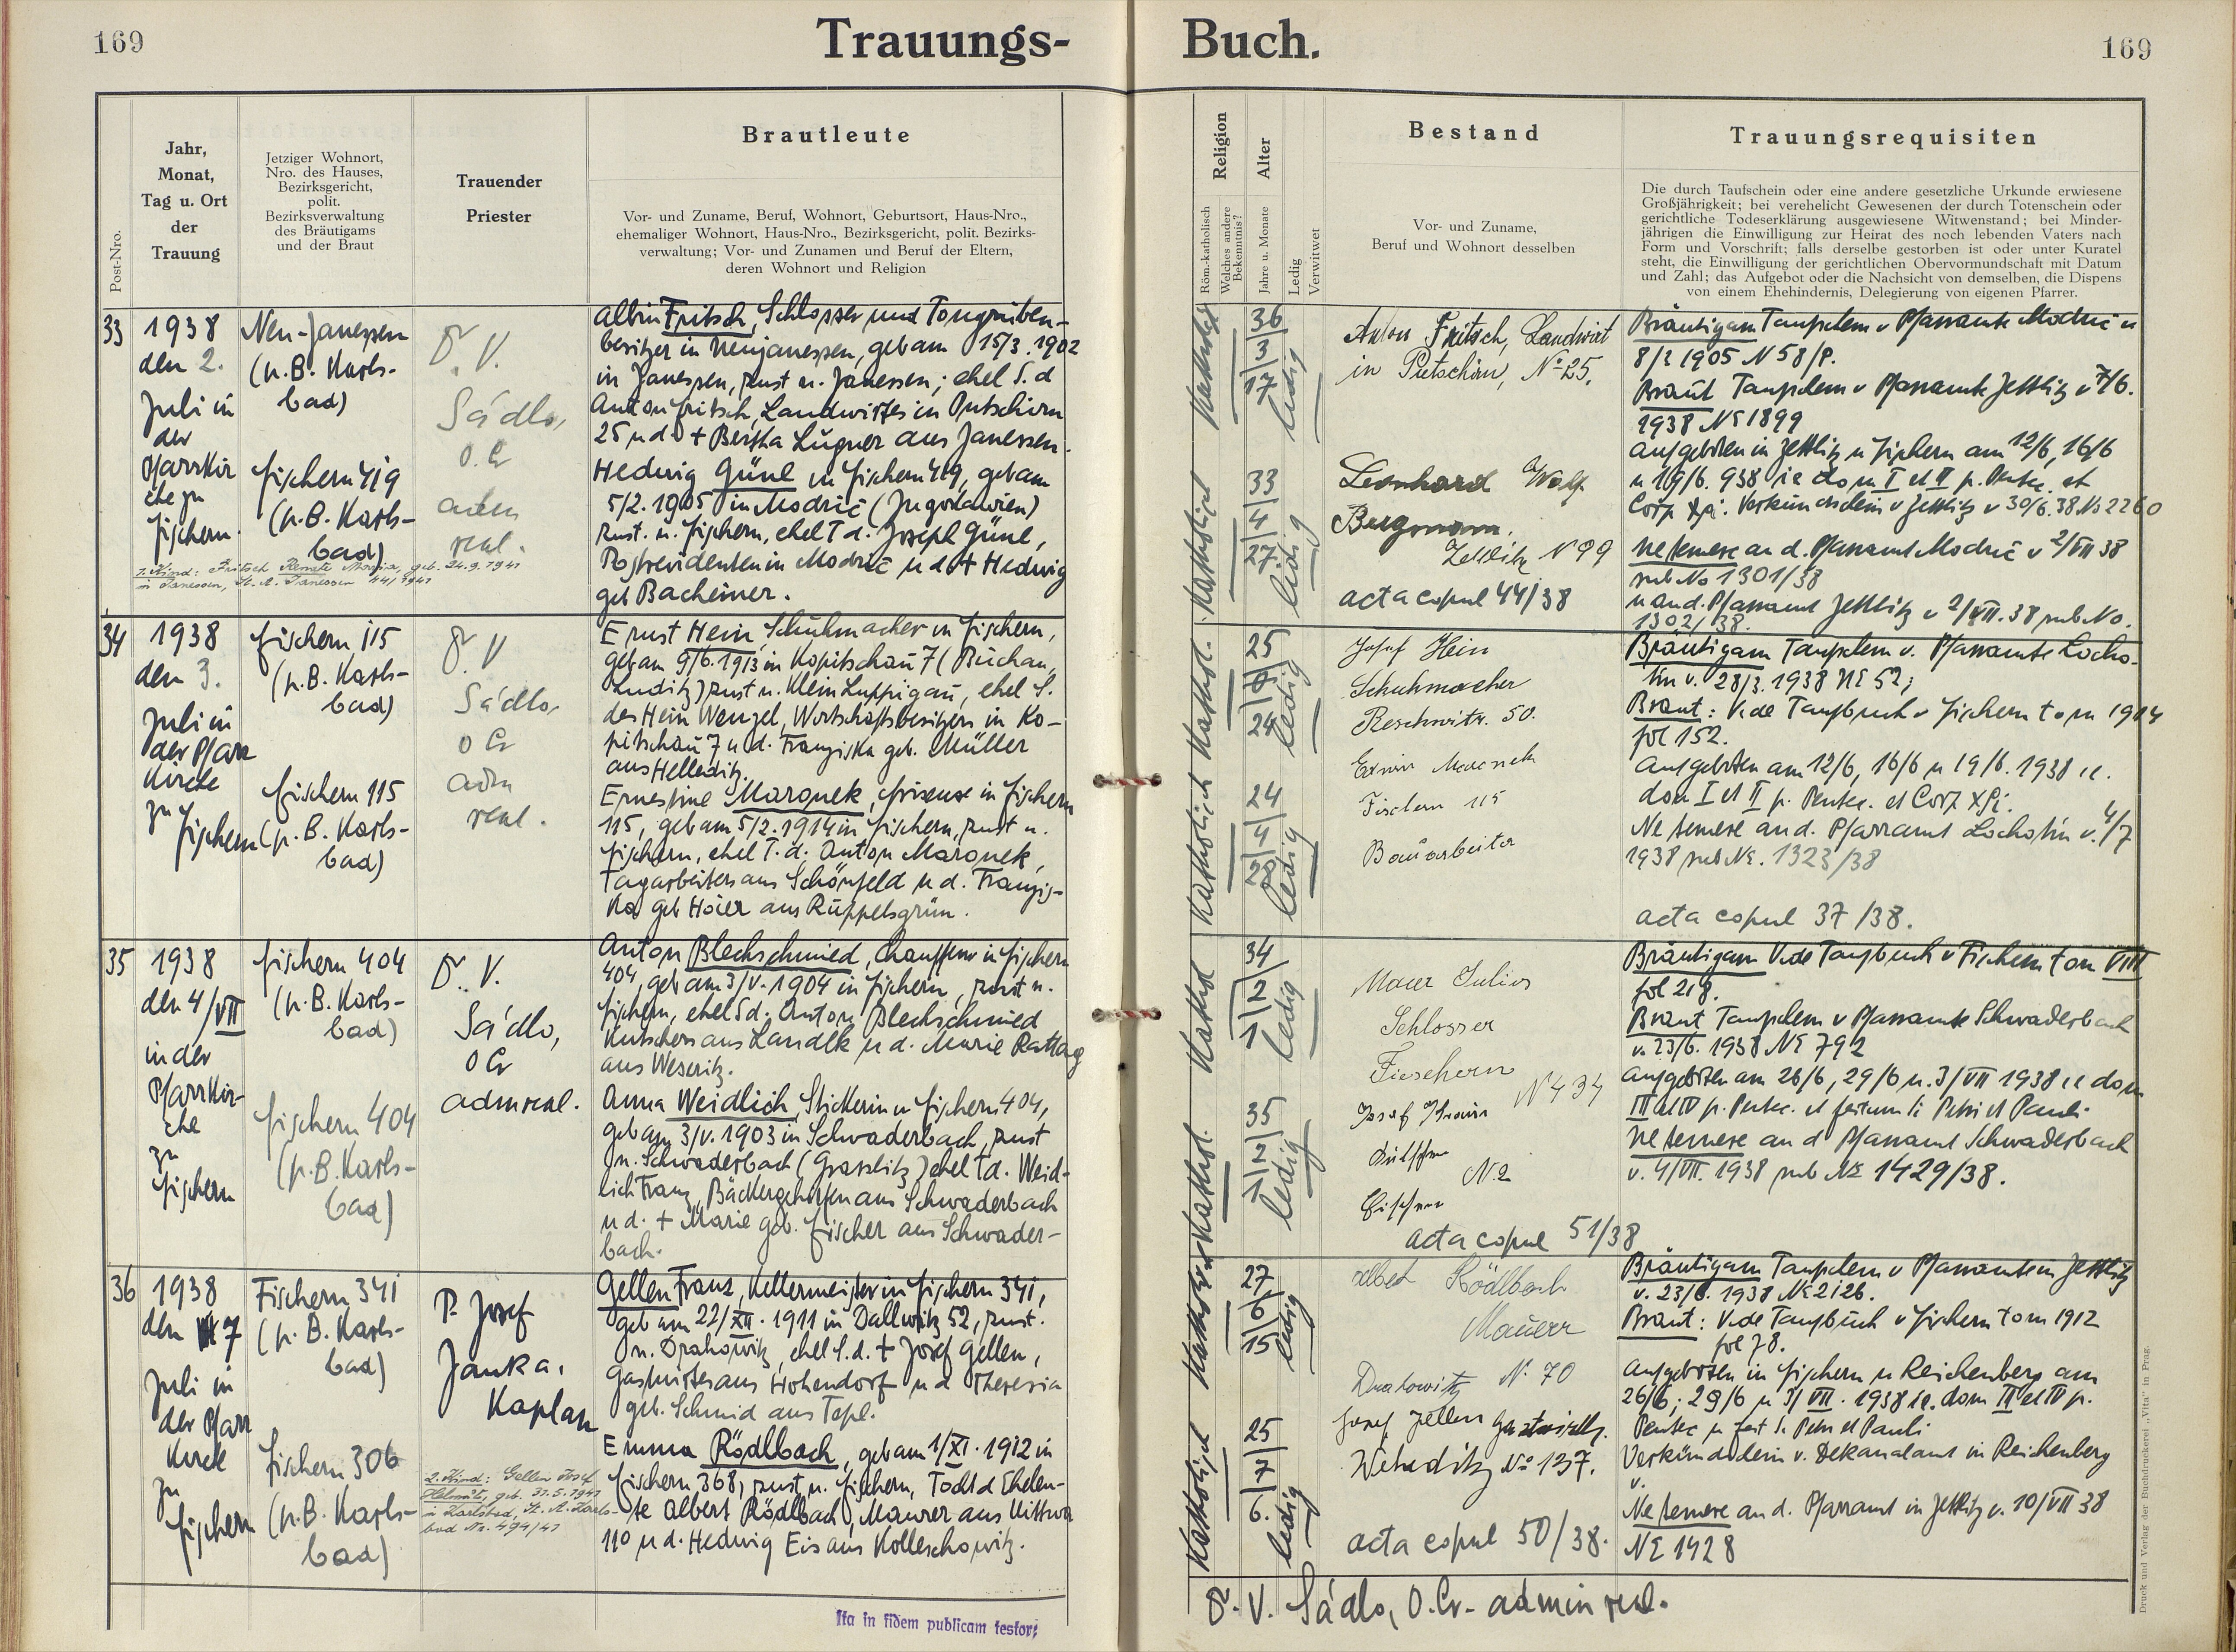 169
Trauungs-
Jahr,
Monat,
Tag u. Ort
der
Trauung
Post-Nro.
Jetziger Wohnort,
Nro. des Hauses,
Bezirksgericht,
polit.
Bezirksverwaltung
des Bräutigams
und der Braut
Trauender
Priester
Brautleute
Vor- und Zuname, Beruf, Wohnort, Geburtsort, Haus-Nro.,
ehemaliger Wohnort, Haus-Nro., Bezirksgericht, polit. Bezirks-
verwaltung; Vor- und Zunamen und Beruf der Eltern,
deren Wohnort und Religion
33
1938
den 2.
Juli in
der
Pfarrkir
che zu
Fischern.
Neu-Janessen
(p.B. Karls-
bad)
Fischern 419
(p.B. Karls-
bad)
V.
Sádlo,
O. Cr
adm
real.
Albin Fritsch, Schlosser und Tongruben-
besitzer in Neujanessen, geb am 15/3. 1902
in Janessen, zust n. Janessen; ehel S. d
Anton Fritsch, Landwirtes in Putschirn
25 u d. + Bertha Lugner aus Janessen.
Hedwig Günl in Fischern 419, geb am
5/2. 1905 in Modrič (Jugoslawien)
zust. n. Fischern, ehel T d. Joseph Günl,
Postrevidenten in Modrič u d + Hedwig
geb Bacheiner.
1. Kind: Fritsch Renate Maria, geb. 24.9.1941
in Janessen, St. A. Janessen 44/1941
34
1938
den 3.
Juli in
der Pfarr
Kirche
zu
Fischern
Fischern 115
(p.B. Karls-
bad)
Fischern 115
(p.B. Karls-
bad)
V
Sádlo,
O Cr
adm
real.
Ernst Hein, Schuhmacher in Fischern,
geb am 9/6. 1913 in Kopitschau 7 (Buchau,
Luditz) zust n. Klein Luppigau, ehel S.
des Hein Wenzel, Wirtschaftsbesitzers in Ko-
pitschau 7 u d. Franziska geb. Müller
aus Helleditz.
Ernestine Maronek, Friseuse in Fischern
115, geb am 5/2. 1914 in Fischern, zust n.
Fischern, ehel T. d. Anton Maronek,
Tagarbeiters aus Schönfeld u d. Franzis-
ka geb Hoier aus Ruppelsgrün.
35
1938
den 4/VII
in der
Pfarrkir-
che
zu
Fischern
Fischern 404
(p.B. Karls-
bad)
Fischern 404
(p.B. Karls-
bad)
V.
Sádlo,
O Cr
adm real.
Anton Blechschmied, Chauffeur in Fischern
404, geb am 3/V. 1904 in Fischern, zust n.
Fischern, ehel S d. Anton Blechschmied
Kutschers aus Landek u d. Marie Rattag
aus Weseritz.
Anna Weidlich, Stickerin in Fischern 404,
geb am 3/V. 1903 in Schwaderbach, zust
n. Schwaderbach (Graslitz) ehel T d. Weid-
lich Franz, Bäckergehilfen aus Schwaderbach
u d. + Marie geb. Fischer aus Schwader-
bach.
36
1938
den 7
Juli in
der Pfarr
Kirche
zu
Fischern
Fischern 341
(p. B. Karls-
bad)
Fischern 306
(p.B. Karls-
bad)
P. Josef
Janka,
Kaplan
Gellen Franz, Kellermeister in Fischern 341,
geb am 22/XII. 1911 in Dallwitz 52, zust.
n. Drahowitz, ehel S. d. + Josef Gellen,
Gastwirtes aus Hohendorf u d Theresia
geb. Schmid aus Tepl.
Emma Rödlbach, geb am 1/XI. 1912 in
Fischern 368, zust n. Fischern, Tocht d Eheleu-
te Albert Rödlbach, Maurer aus Wittwa
110 u d. Hedwig Eis aus Kolleschowitz.
2. Kind: Gellen Josef
Helmut, geb. 31.5.1941
in Karlsbad, St. A. Karls-
bad Nr. 494/41
Ita in fidem publicam testor:
Buch.
169
Religion
Röm.-katholisch
Welches andere
Bekenntnis?
Alter
Jahre u. Monate
Ledig
Verwitwet
Bestand
Vor- und Zuname,
Beruf und Wohnort desselben
Trauungsrequisiten
Die durch Taufschein oder eine andere gesetzliche Urkunde erwiesene
Großjährigkeit; bei verehelicht Gewesenen der durch Totenschein oder
gerichtliche Todeserklärung ausgewiesene Witwenstand; bei Minder-
jährigen die Einwilligung zur Heirat des noch lebenden Vaters nach
Form und Vorschrift; falls derselbe gestorben ist oder unter Kuratel
steht, die Einwilligung der gerichtlichen Obervormundschaft mit Datum
und Zahl; das Aufgebot oder die Nachsicht von demselben, die Dispens
von einem Ehehindernis, Delegierung von eigenen Pfarrer.
Katholisch
36
3
17
ledig
Anton Fritsch, Landwirt
in Putschirn, No 25.
Katholisch
33
4
27.
ledig
Leonhard Wolf
Bergmann.
Zettlitz No 99
acta copul 44/38
Bräutigam Taufschein v Pfarramte Modrič v
8/2 1905 N 58/P.
Braut Taufschein v Pfarramte Zettlitz v 7/6.
1938 No 1899
Aufgeboten in Zettlitz u Fischern am 12/6, 16/6
u 19/6. 938 ie dom I et II p. Pentec. et
Corp Xpi. Verkündschein v Zettlitz v 30/6. 38. No 2260
Ne temere an d. Pfarramt Modrič v 2/VII 38
sub No 1301/38
u an d. Pfarramt Zettlitz v 2/VII. 38 sub No.
1302/38.
Kathol.
25
0
24
ledig
Josef Hein
Schuhmacher
Reschwitz. 50.
Katholisch
24
4
28
ledig
Erwin Maronek
Fischern 115
Bauarbeiter
Bräutigam Taufschein v. Pfarramte Locho-
tin v. 28/3. 1938 No 52;
Braut: Vide Taufbuch v Fischern tom 1914
fol 152.
Aufgeboten am 12/6, 16/6 u 19/6. 1938 ie.
dom I et II p. Pentec. et Corp. Xpi.
Ne temere an d. Pfarramt Lochotin v. 4/7
1938 sub No. 1323/38
acta copul 37/38.
Kathol
34
2
1
ledig
Maier Julius
Schlosser
Fischern
No 434
Kathol.
35
2
1
ledig
Josef
No 2
Fischern
acta copul 51/38
Bräutigam Vide Taufbuch v Fischern tom VIII
fol 218.
Braut Taufschein v Pfarramte Schwaderbach
v. 23/6. 1938 No 792
Aufgeboten am 26/6, 29/6 u. 3/VII 1938 ie dom
III et IV p. Pentec. et festum S. Petri et Pauli.
Ne temere an d Pfarramt Schwaderbach
v. 4/VII. 1938 sub No 1429/38.
Katholisch
27
6
15
ledig
Albert Rödlbach
Maurer
Drahowitz No 70
Katholisch
25
7
6.
ledig
Josef Gellen
Weheditz No 137.
acta copul 50/38.
Bräutigam Taufschein v Pfarramte in Zettlitz
v. 23/6. 1938 No 2126.
Braut: Vide Taufbuch v Fischern tom 1912
fol 78.
Aufgeboten in Fischern u Reichenberg am
26/6; 29/6 u 3/VII. 1938 ie. dom III et IV p.
Pentec u fest S. Petri et Pauli
Verkündschein v. Dekanalamt in Reichenberg
v.
Ne temere an d. Pfarramt in Zettlitz v. 10/VII 38
No 1428
V. Sádlo, O.Cr. admin real.
Druck und Verlag der Buchdruckerei „Vita" in Prag.